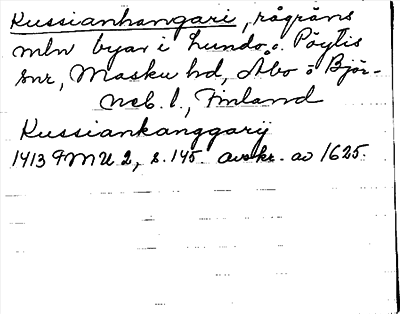 Kussianhangari, rågräns
mln byar i Lundo o. Pöytis
snr, Masku hd, Åbo o Björ-
neb. l., Finland
Kussiankanggarij
1413 FMU 2, s. 145. avskr. av 1625.